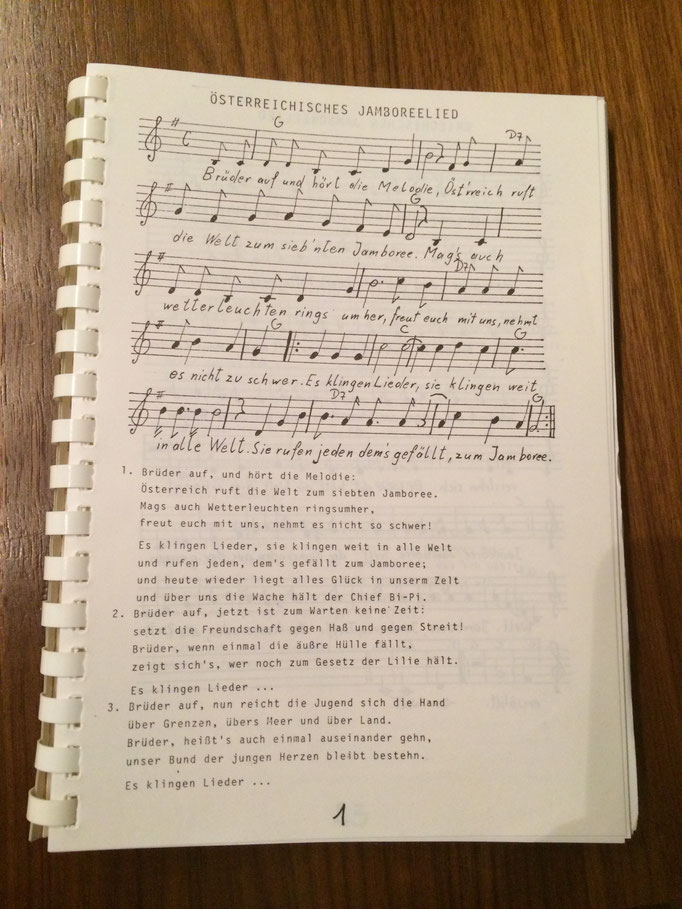 ÖSTERREICHISCHES JAMBOREELIED
G D7
Brüder auf und hört die Melodie, Öst'rreich ruft
G
die Welt zum sieb'nten Jamboree. Mag's auch
D7
wetterleuchten rings umher, freut euch mit uns, nehmt
G C G
es nicht zu schwer. Es klingen Lieder, sie klingen weit
D7 G
in alle Welt. Sie rufen jeden dem's gefällt, zum Jamboree.
1. Brüder auf, und hört die Melodie:
Österreich ruft die Welt zum siebten Jamboree.
Mags auch Wetterleuchten ringsumher,
freut euch mit uns, nehmt es nicht so schwer!
Es klingen Lieder, sie klingen weit in alle Welt
und rufen jeden, dem's gefällt zum Jamboree;
und heute wieder liegt alles Glück in unserm Zelt
und über uns die Wache hält der Chief Bi-Pi.
2. Brüder auf, jetzt ist zum Warten keine Zeit:
setzt die Freundschaft gegen Haß und gegen Streit!
Brüder, wenn einmal die äußre Hülle fällt,
zeigt sich's, wer noch zum Gesetz der Lilie hält.
Es klingen Lieder ...
3. Brüder auf, nun reicht die Jugend sich die Hand
über Grenzen, übers Meer und über Land.
Brüder, heißt's auch einmal auseinander gehn,
unser Bund der jungen Herzen bleibt bestehn.
Es klingen Lieder ...
1